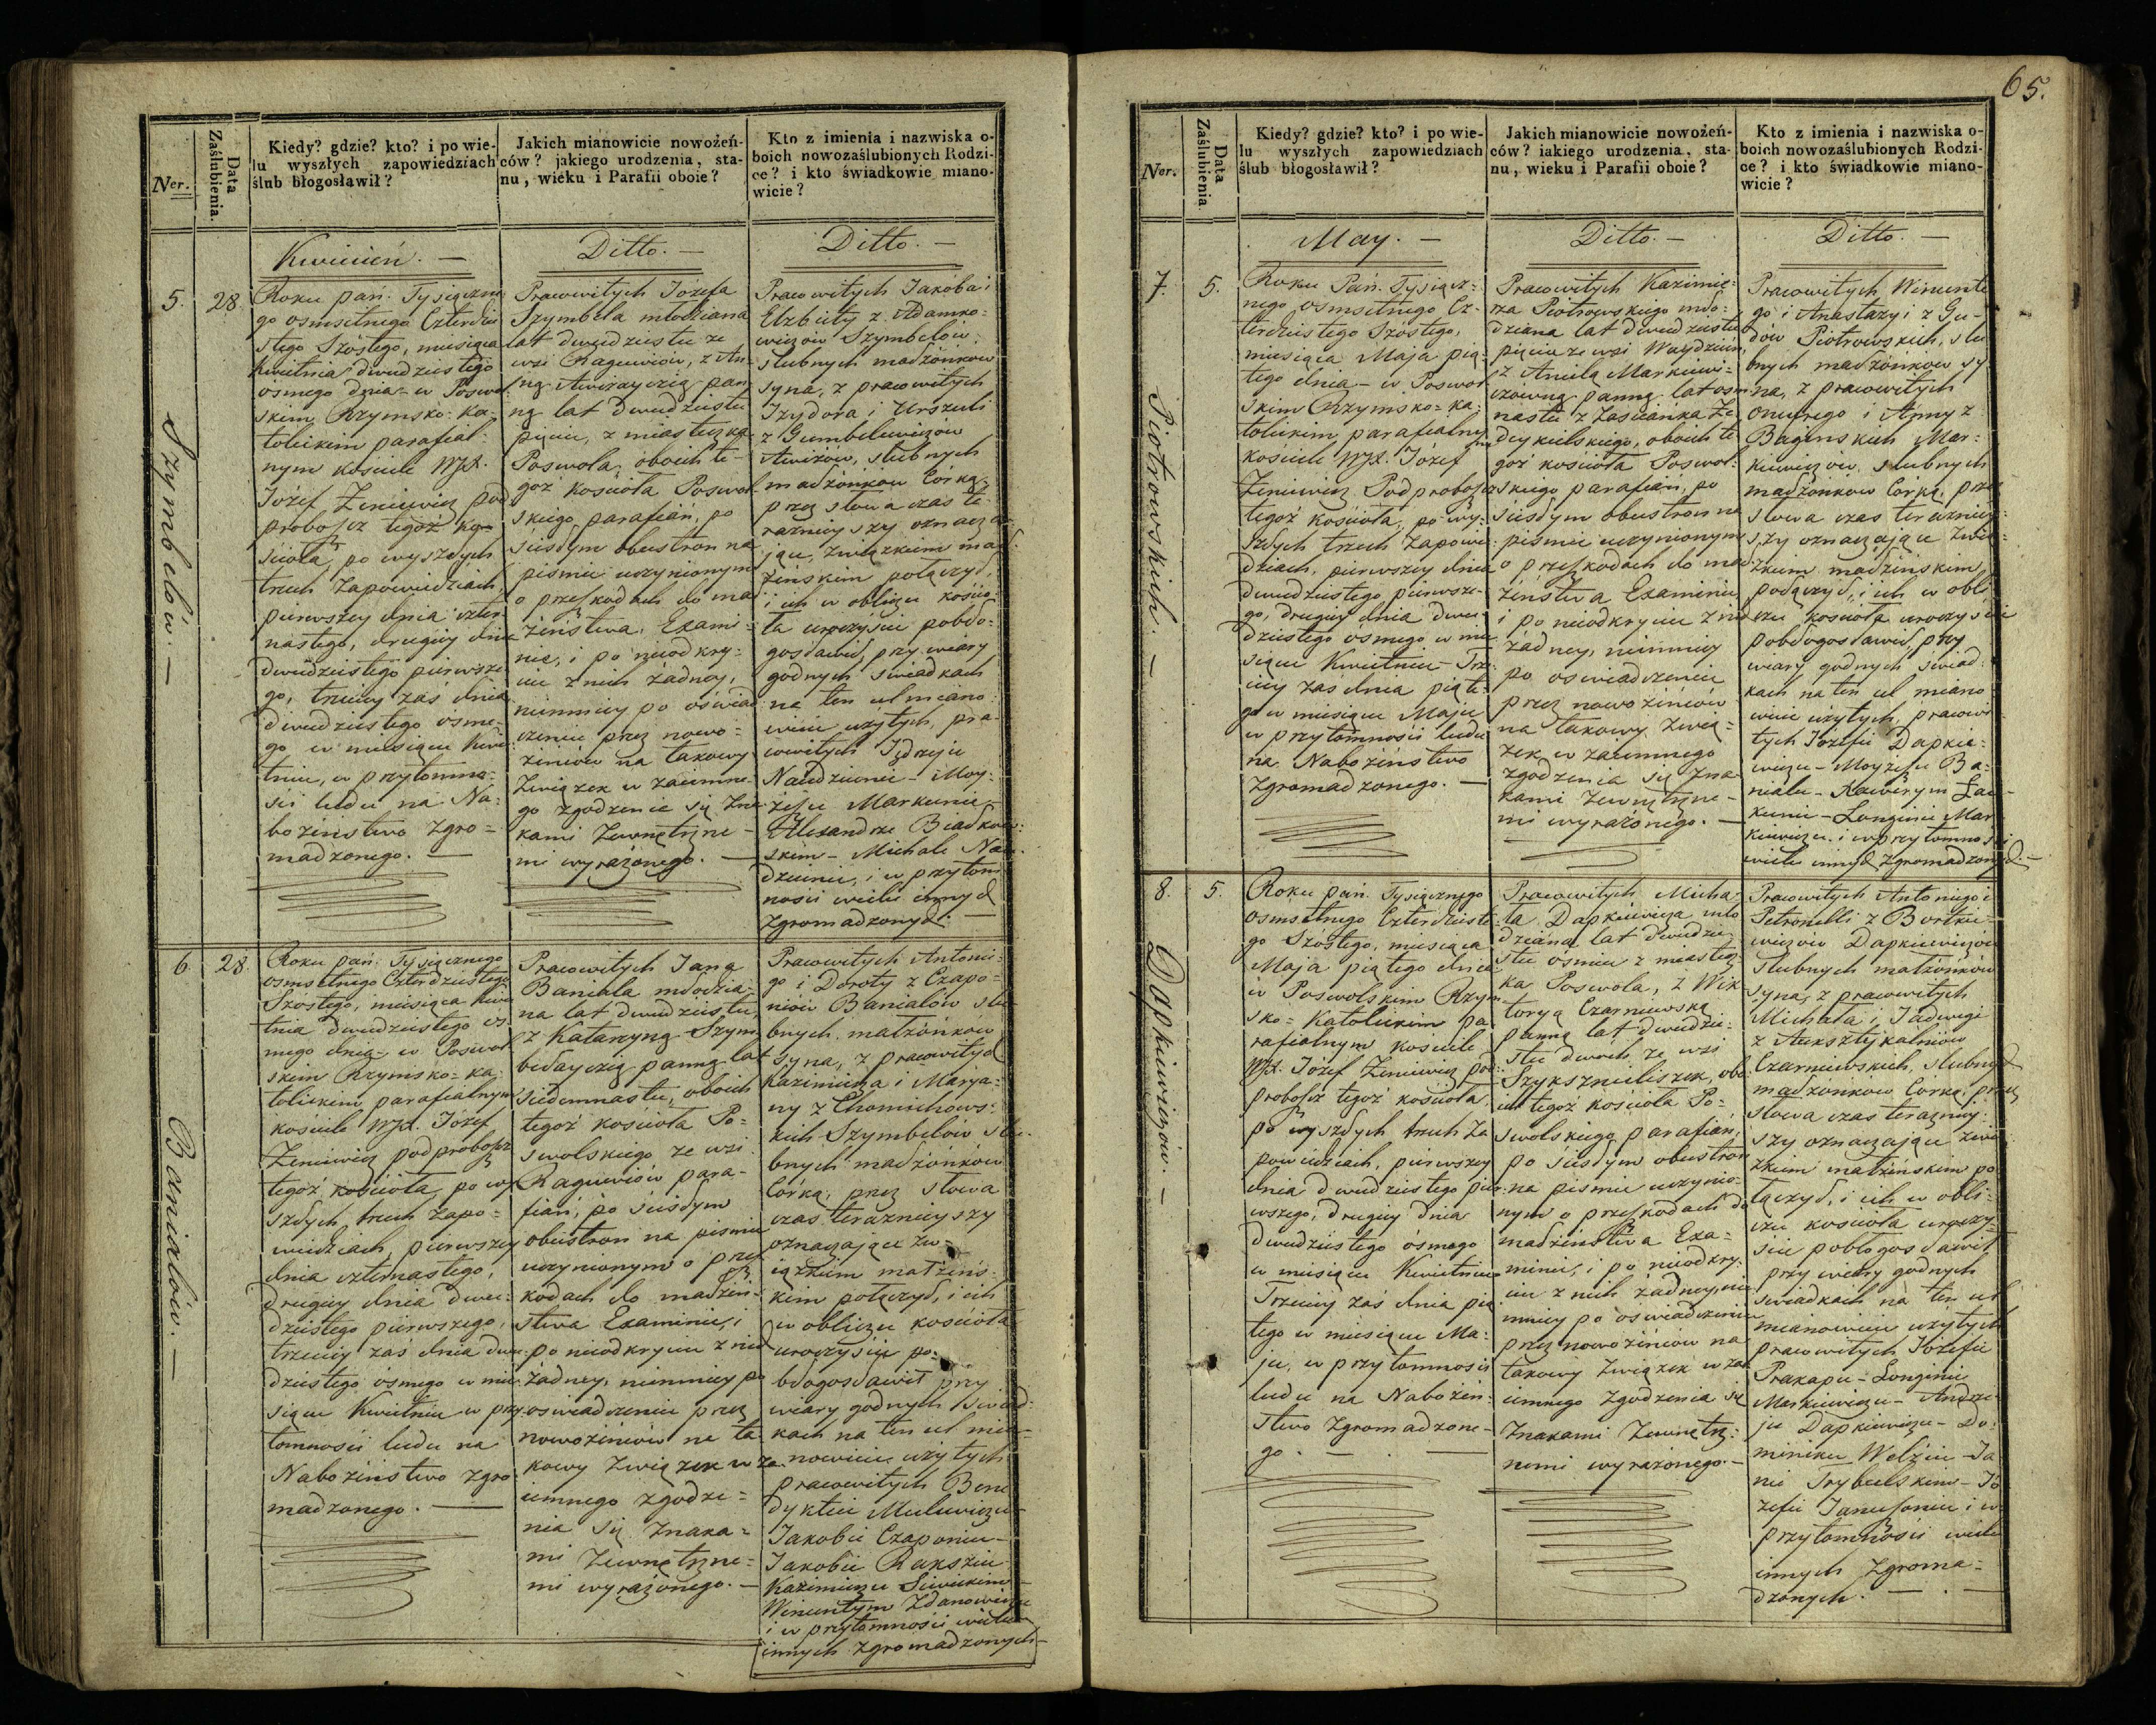 65.
Ner.
Data
Zaślubienia.
Kiedy? gdzie? kto? i po wie-
lu wyszłych zapowiedziach
ślub błogosławił?
Jakich mianowicie nowożeń-
ców? jakiego urodzenia, sta-
nu, wieku i Parafii oboie?
Kto z imienia i nazwiska o-
boich nowozaślubionych Rodzi-
ce? i kto świadkowie miano-
wicie?
Kwiecień. —
Ditto. —
Ditto. —
5.
28.
Szymbelów. —
Roku pań. Tysiączne
go osmsetnego Czterdzie
stego Szóstego, miesiąca
Kwietnia dwudziestego
ósmego dnia - w Poswol
skim Rzymsko-Ka-
tolickim parafial-
nym kościele WJX.
Józef Zieniewicz pod
proboszcz tegoż ko-
ścioła, po wyszłych
trzech zapowiedziach,
pierwszey dnia czter
nastego, drugiey dnia
dwudziestego pierwsze
go, trzeciey zaś dnia
dwudziestego osme-
go w miesiącu Kwie
tniu, w przytomno-
ści ludu na Na-
bożeństwo zgro-
madzonego. —
Pracowitych Jozefa
Szymbela młodziana
lat dwudziestu ze
wsi Raguwiów, z An-
ną Awizayczią pan
ną lat dwudziestu
pięciu, z miasteczka
Poswola, oboich te-
goż kościoła Poswol
skiego parafian, po
ścisłym obustron na
piśmie uczynionym
o przeszkodach do ma
żeństwa. Exami-
nie, i po nieodkry-
ciu z nich żadney,
niemniey po oświad
czeniu przez nowo-
żeńców na takowy
Związek w zaiemne-
go zgodzenie się Zna
kami Zewnętrzne-
mi wyrażonego. —
Pracowitych Jakóba i
Elżbiety z Adamko-
wiczow Szymbelów,
slubnych małżonkow
syna, z pracowitych
Izydora i Urszuli
z Gumbelewiczow
Awiżow, slubnych
małżonkow Córką,
przez słowa czas te-
raźnieyszy oznacza
jące, związkiem mał
żeńskim połączył,
i ich w obliczu kościo
ła uroczyście pobło-
gosławił, przy wiary
godnych świadkach
na ten cel miano
wicie użytych, pra-
cowitych Jędrzeju
Naudziunie - Moy-
żeszu Markunie -
Alexandrze Białkow-
skim - Michale Nau-
dziunie, i w przytom
ności wielu innych
Zgromadzonych. —
6.
28.
Banialów. —
Roku pań. Tysiącznego
osmsetnego Czterdziestego
Szostego, miesiąca Kwie
tnia dwudziestego os
mego dnia - w Poswol
skim Rzymsko-Ka-
tolickim parafialnym
kościele WJX. Józef
Zieniewicz podproboszcz
tegoż kościoła, po wy
szłych trzech zapo-
wiedziach, pierwszey
dnia czternastego,
drugiey dnia dwu-
dziestego pierwszego,
trzeciey zaś dnia dwu-
dziestego ósmego w mie-
siącu Kwietniu w przy
tomności ludu na
Nabożeństwo zgro
madzonego. —
Pracowitych Jana
Baniala młodzia-
na lat dwudziestu,
z Katarzyną Szym
belayczią panną lat
siedemnastu, oboich
tegoż kościoła Po-
swolskiego ze wsi
Raguwiów para-
fian, po ścisłym
obustron na piśmie
uczynionym o prze
szkodach do małżeń-
stwa Examinie, i
po nieodkryciu z nich
żadney, niemniey po
oświadczeniu przez
nowożeńców na ta-
kowy Związek w za
iemnego zgodze-
nia się znaka-
mi Zewnętrzne-
mi wyrażonego. —
Pracowitych Antonie-
go i Doroty z Czapo-
niów Banialów slu
bnych małżonków
syna, z pracowitych
Kazimierza i Marja-
ny z Chomichows-
kich Szymbelów slu-
bnych małżonków
Córką, przez słowa
czas teraznieyszy
oznaczające zw-
iązkiem małżeńs-
kim połączył, i ich
w obliczu kościoła
uroczyście po-
błogosławił przy
wiary godnych świad-
kach na ten cel mia-
nowicie użytych
pracowitych Bene
dykcie Mulewiczu
Jakobie Czaponiu -
Jakobie Rakszciu
Kazimierzu Siwickim -
Wincentym Zdanowiczu
i w przytomności wielu
innych zgromadzonych —
Ner.
Data
Zaślubienia.
Kiedy? gdzie? kto? i po wie-
lu wyszłych zapowiedziach
ślub błogosławił?
Jakich mianowicie nowożeń-
ców? iakiego urodzenia, sta-
nu, wieku i Parafii oboie?
Kto z imienia i nazwiska o-
boich nowozaślubionych Rodzi-
ce? i kto świadkowie miano-
wicie?
May. —
Ditto. —
Ditto. —
7.
5.
Piotrowskich. —
Roku Pań. Tysiącz-
nego osmsetnego Cz-
terdziestego Szóstego,
miesiąca Maja pią-
tego dnia - w Poswol
skim Rzymsko-ka-
tolickim parafialnym
kościele WJX. Józef
Zieniewicz Podproboszcz
tegoż kościoła, po wy-
szłych trzech Zapowie
dziach, pierwszey dnia
dwudziestego pierwsze-
go, drugiey dnia dwu-
dziestego ósmego w mie
siącu Kwietniu - Trze-
ciey zaś dnia piąte-
go w miesiącu Maju
w przytomności ludu
na Nabożeństwo
Zgromadzonego. —
Pracowitych Kazimie-
rza Piotrowskiego mło-
dziana lat dwudziestu
pięciu ze wsi Woyđziun,
z Anielą Markiewi-
czowną panną lat osm
nastu z Zaścianka Ze
deykelskiego, oboich te
goż kościoła Poswol-
skiego parafian, po
ścisłym obustron na
piśmie uczynionym
o przeszkodach do mał
żeństwa Examinie
i po nieodkryciu z nich
żadney, niemniey
po oświadczeniu
przez nowożeńców
na takowy Zwią-
zek w zaiemnego
zgodzenia się Zna
kami Zewnętrzne-
mi wyrażonego. —
Pracowitych Wincente
go i Anastazyi z Gu-
dów Piotrowskich, slu
bnych małżonkow sy-
na, z pracowitych
Onufrego i Anny z
Baginskich Mar-
kiewiczów, slubnych
małżonkow Córką, prze
słowa czas teraźniey-
szy oznaczające Zwią-
zkiem małżeńskim
połączył, i ich w obli
czu kościoła uroczyście
pobłogosławił, przy
wiary godnych świad-
kach na ten cel miano
wicie użytych, pracowi
tych Józefie Dapkie-
wiczu - Moyżeszu Ba-
nialu - Xawerym Lau-
kunie - Longinie Mar
kiewiczu i w przytomności
wielu innych Zgromadzonych. —
8.
5.
Dapkiewiczów. —
Roku pań. Tysiącznego
osmsetnego Czterdzieste
go Szóstego, miesiąca
Maja piątego dnia
w Poswolskim Rzym
sko-Katolickim pa-
rafialnym kościele
WJX. Józef Zieniewicz pod-
proboszcz tegoż kościoła
po wyszłych trzech Za
powiedziach, pierwszey
dnia dwudziestego pier-
wszego, drugiey dnia
dwudziestego ósmego
w miesiącu Kwietniu
Trzeciey zaś dnia pią
tego w miesiącu Ma-
ju, w przytomności
ludu na Nabożeń-
stwo Zgromadzone-
go. —
Pracowitych Micha-
ła Dapkiewicza mło
dziana lat dwudzie
stu osmiu z miastecz
ka Poswola, z Wik
toryą Czarniewską
panną lat dwudzie-
stu dwóch ze wsi
Szyksznieliszek, obo
ich tegoż kościoła Po-
swolskiego parafian,
po ścisłym obustron
na piśmie uczynio-
nym o przeszkodach do
małżeństwa Exa-
minie, i po nieodkry-
ciu z nich żadney, nie
mniey po oświadczeniu
przez nowożeńcow na
takowy Związek w za
iemnego Zgodzenia się
Znakami Zewnętrz-
nemi wyrażonego. —
Pracowitych Antoniego i
Petronelli z Bortkie-
wiczow Dapkiewiczów
slubnych małżonków
syna, z pracowitych
Michała i Jadwigi
z Aukszttykalniów
Czarniewskich, slubnych
małżonkow Corką, przez
słowa czas teraźniey-
szy oznaczające zwią
zkiem małżeńskim po
łączył, i ich w obli-
czu kościoła uroczy-
ście pobłogosławił
przy wiary godnych
świadkach na ten cel
mianowicie użytych
pracowitych Józefie
Prakapu - Longinie
Markiewiczu - Andrze
ju Dapkiewiczu - Do-
miniku Welżiu - Ja-
nie Trybulskim - Jó
zefie Januszoniu i w
przytomności wielu
innych Zgroma-
dzonych. —